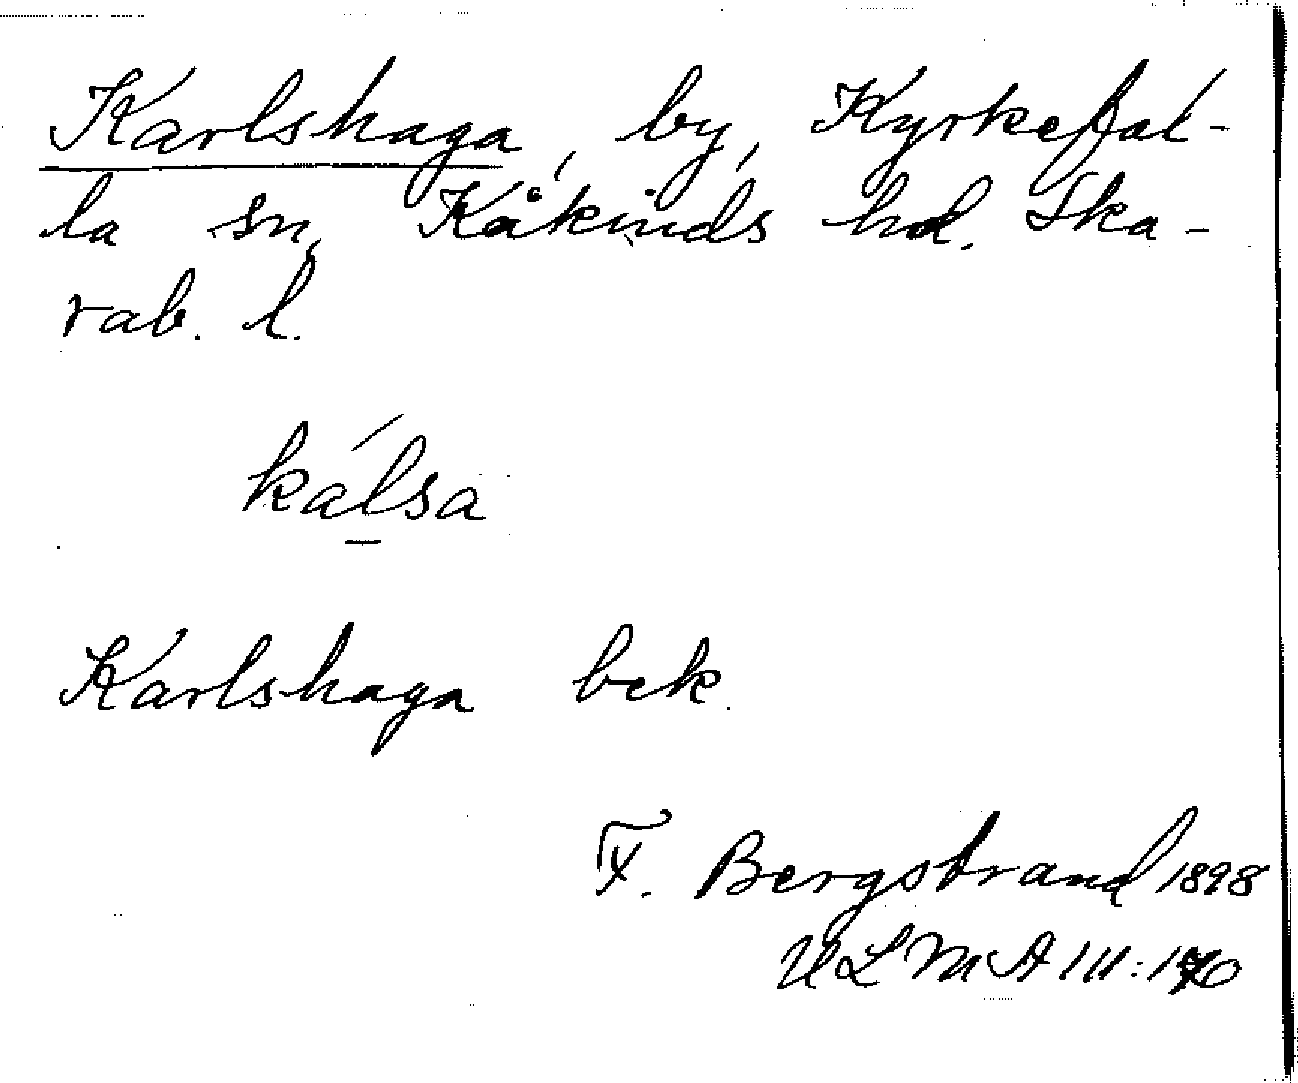 Karlshaga, by, Kyrkefal-
la sn, Kåkinds hd. Ska-
rab. l.
kálsa
Karlshaga bek.
F. Bergstrand 1898
ULMA III:170